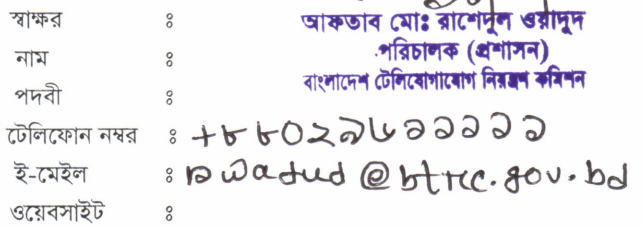 স্বাক্ষর :
আফতাব মোঃ রাশেদুল ওয়াদুদ
নাম :
পরিচালক (প্রশাসন)
বাংলাদেশ টেলিযোগাযোগ নিয়ন্ত্রণ কমিশন
পদবী :
টেলিফোন নম্বর : +৮৮০২৯৬১১১১১
ই-মেইল : rwadud@btrc.gov.bd
ওয়েবসাইট :